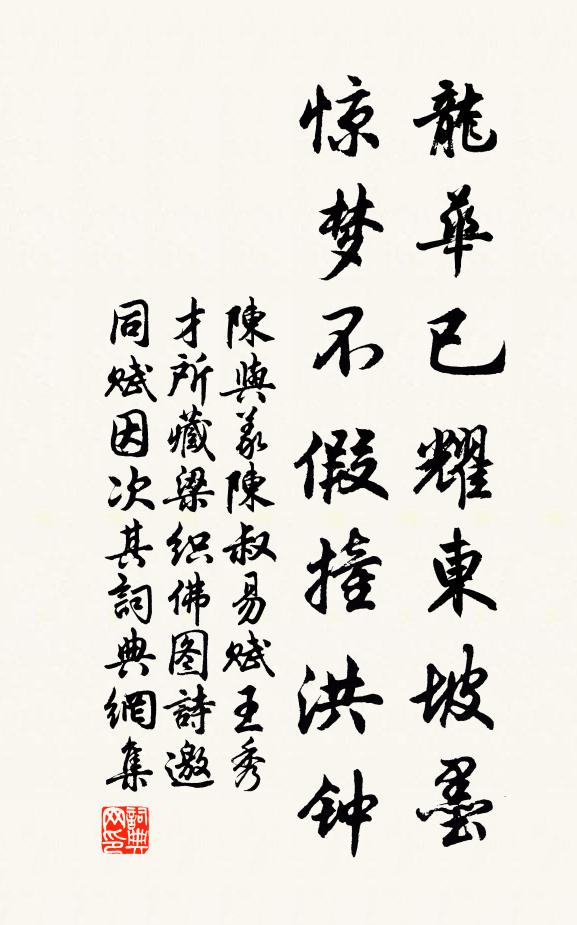 龍華已耀東坡墨
惊梦不假撞洪钟
陳與义陳叔易赋王秀
才所藏梁织佛图詩邀
同赋因次其詞典網集
詞典网印